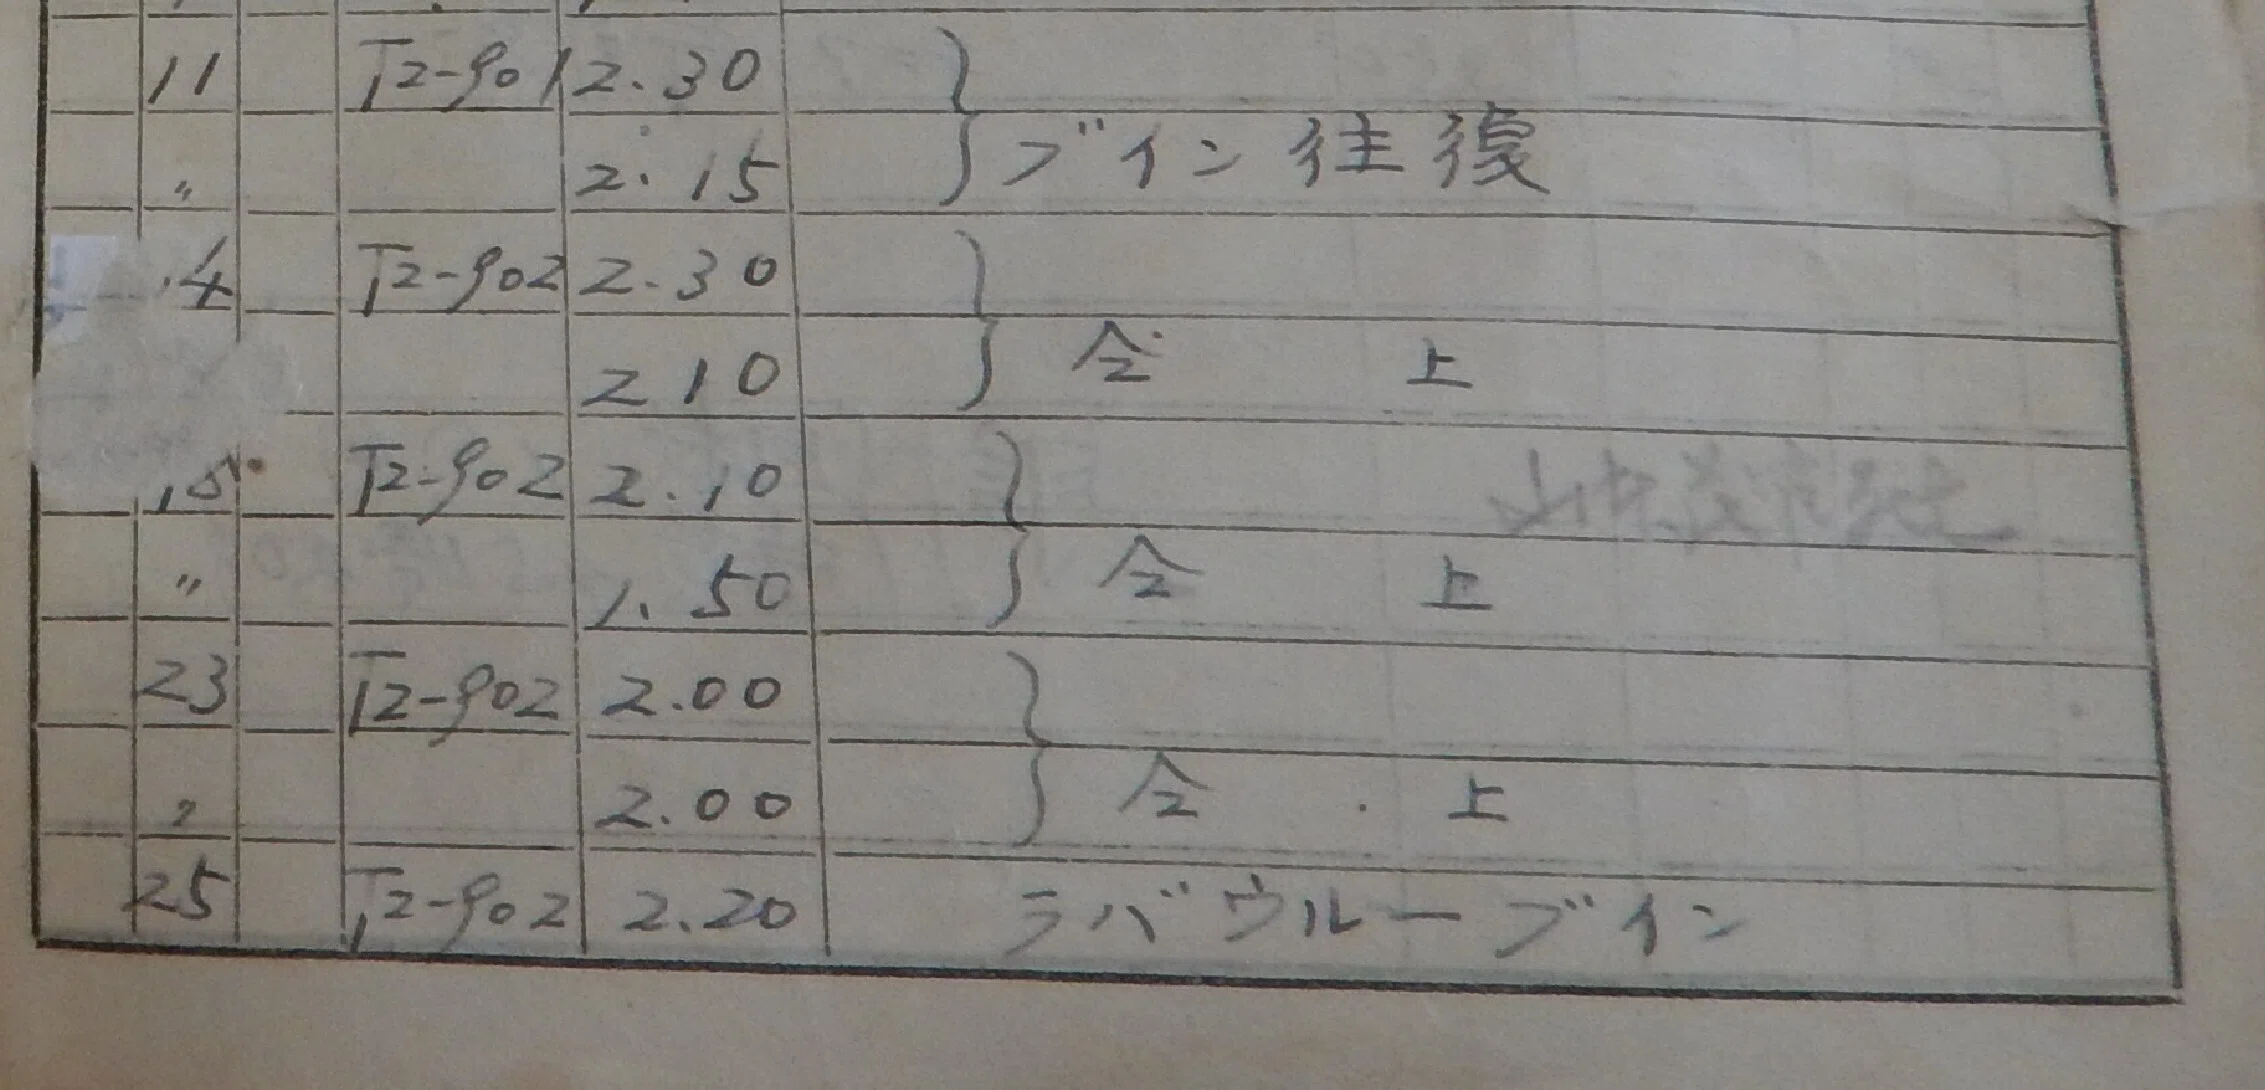 11 T2-901 2.30
〃 2.15 ブイン往復
14 T2-902 2.30
2 10 仝 上
15 T2-902 2.10
〃 1.50 仝 上
23 T2-902 2.00
〃 2.00 仝 上
25 T2-902 2.20 ラバウルーブイン